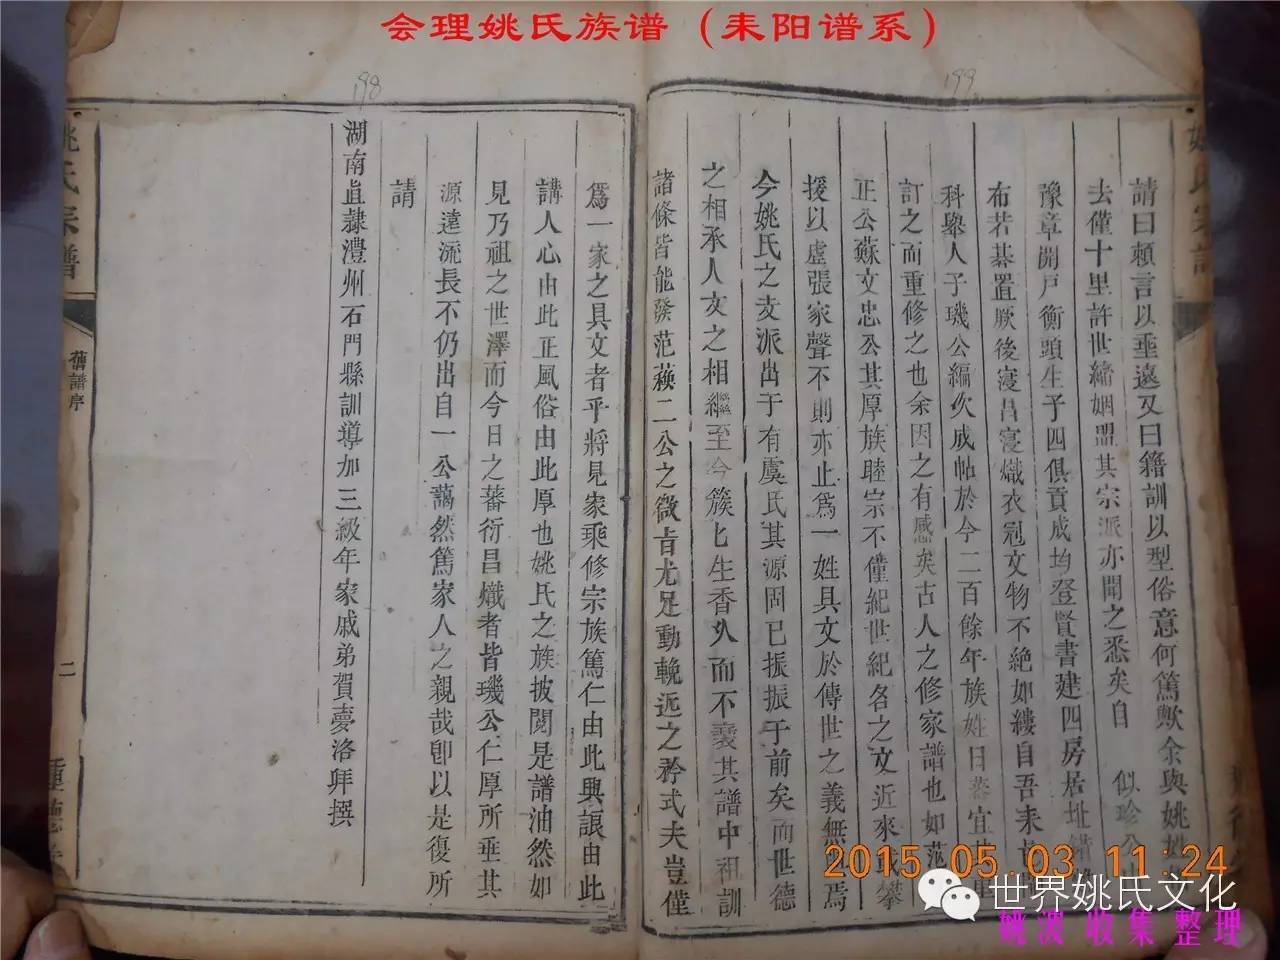 会理姚氏族谱（耒阳谱系）
198
199
請曰頼言以垂遠又曰籍訓以型俗意何篤歟余與姚
去僅十里許世締姻盟其宗派亦聞之悉矣自 似珍公
豫章開戸衡頭生子四俱貢成均登賢書建四房居址錯
布若碁置厥後寖昌寖熾衣冠文物不絶如縷自吾耒
科舉人子璣公編次成帖於今二百餘年族姓日蕃宜
訂之而重修之也余因之有感矣古人之修家譜也如范
正公蘇文忠公其厚族睦宗不僅紀世紀各之文近來 攀
援以虚張家聲不則亦止爲一姓具文於傳世之義無 焉
今姚氏之支派出于有虞氏其源固已振振于前矣而世德
之相承人文之相繼至今簇匕生香久而不衰其譜中祖訓
諸條皆能發范蘓二公之微旨尤足動輓近之矜式夫豈僅
爲一家之具文者乎將見家乘修宗族篤仁由此興讓由此
講人心由此正風俗由此厚也姚氏之族披閲是譜油然如
見乃祖之世澤而今日之蕃衍昌熾者皆璣公仁厚所垂其
源遠流長不仍出自一公藹然篤家人之親哉卽以是復所
請
湖南直隷澧州石門縣訓導加三級年家戚弟賀夢洛拜撰
姚氏宗譜
舊譜序
二
2015.05.03 11:24
世界姚氏文化
姚波 收集整理